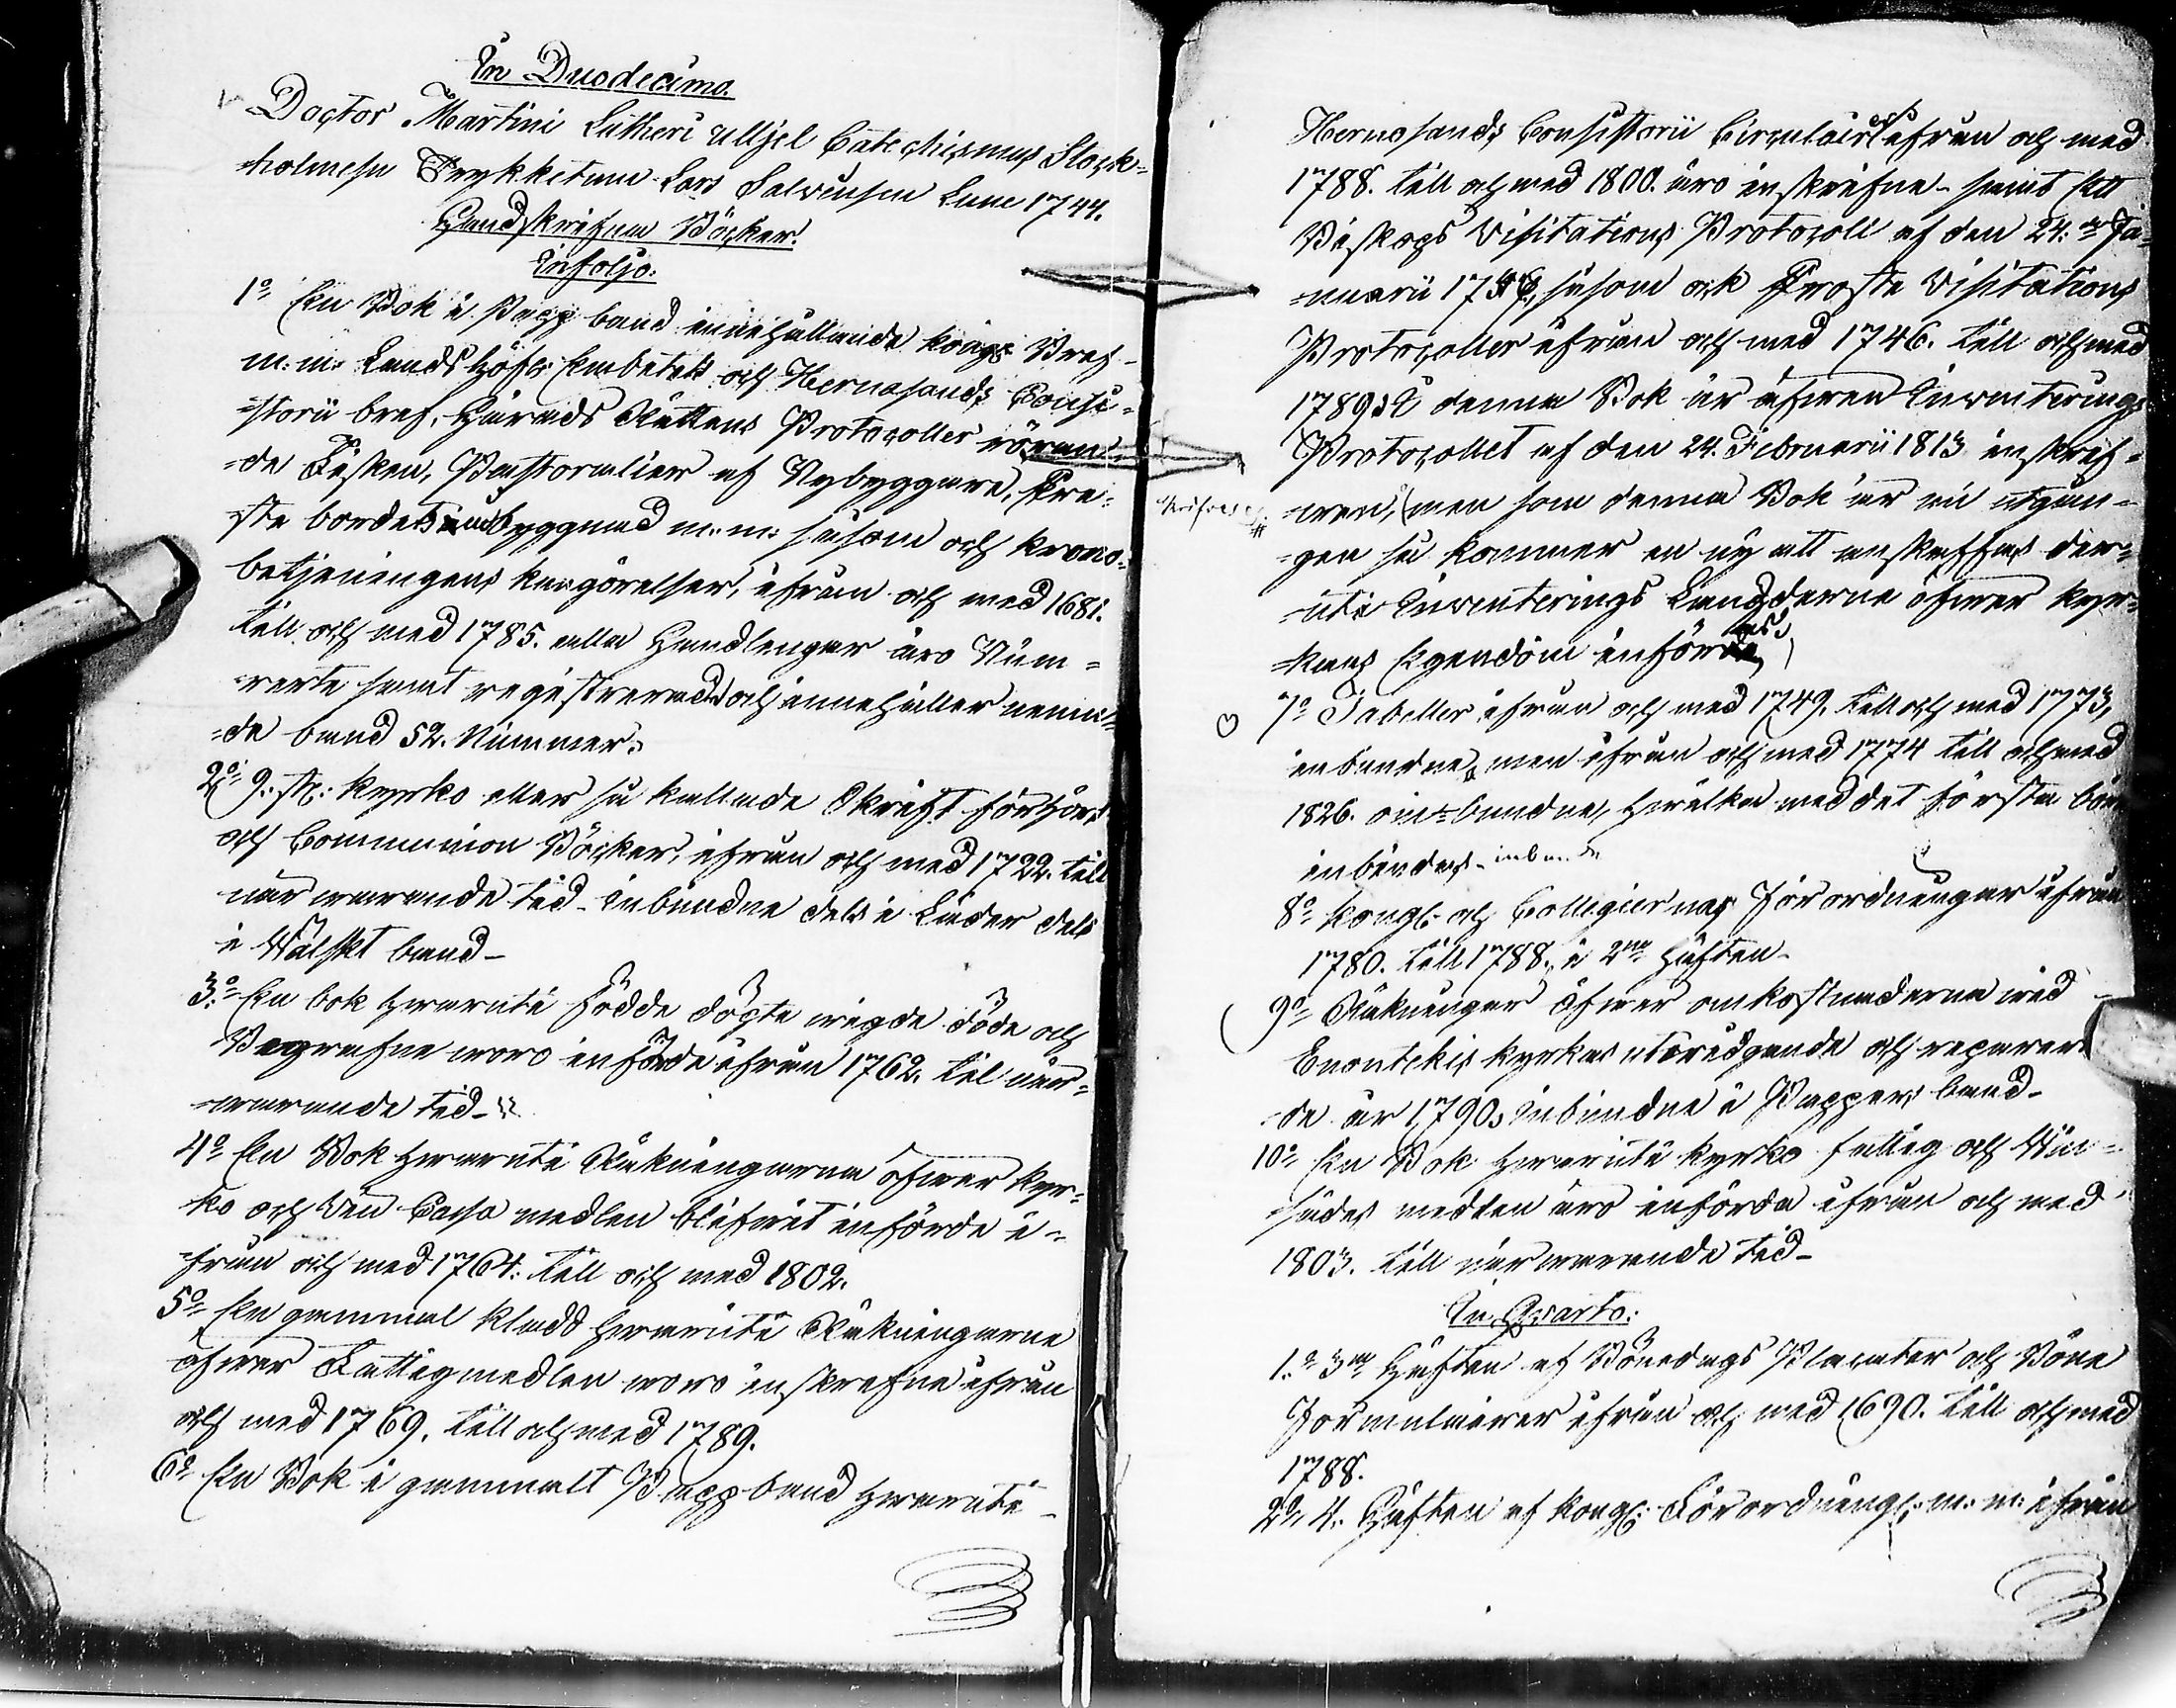 In Duodecimo.
Doctor Martini Lutheri Catechismus Stock=
holmesn Tryckt Lars Salvius 1744.
Handskrifna Böcker.
In folio:
1o En Bok i Papp band innehållande kongl Bref
m: m: Landshöfd: Embetets och Hernösands Consi=
=storii bref, Härads Rättens Protocoller röran=
=de Fisken, Pastoralier af Nybyggare, Pre=
=ste bordets byggnad m: m: såsom och krono=
betjeningens kungörelser, ifrån och med 1681.
till och med 1785. alla Handlingar äro Num=
rerte samt registrerade och innehåller nämn=
=de band 52. Nummer.
2o 9: st: kyrko eller så kallade Skrift förhörs
och Communion Böcker, ifrån och med 1722. till
när warande tid inbundne dels i Läder dels
i Wälskt band
3o En bok hwaruti födde döpte wigde döde och
Begrafne woro införde ifrån 1762. till när=
=warande tid
4o En Bok hwaruti Räkningarna öfwer kyr=
ko och Vin Cassa medlen blifwit införde i=
=från och med 1764: till och med 1802.
5o En gammal kladd hwaruti Räkningarne
öfwer Fattig medlen woro inskrefne ifrån
och med 1769. till och med 1789.
6o En Bok i gammalt Pappband hwaruti
Hernösands Consistorii Circulairer ifrån och med
1788. till och med 1800. äro inskrifne samt Ett
Biskops Visitations Protocoll af den 24:de Ja=
=nuarii såsom ock Proste Visitations
Protocoller ifrån och med 1746. till och med
1789. I denna Bok är äfwen Inventerings
Protocollet af den 24. Februarii 1813 inskrif=
=wen, men som denna Bok är nu utgån=
=gen så kommer en ny att anskaffas der=
=uti Inventerings Längderna öfwer kyr=
=kans Egendom införas
7o Tabeller ifrån och med 1749. till och med 1773,
inbundne, men ifrån och med 1774 till och med
1826. oin=bundne, hwilka med det första böra
inbindas
8o kongl. och Collegiernas Förordningar ifrån
1780. till 1788. i 2ne häften
9o Räkningar öfwer omkostnaderna wid
Enontekis kyrkas utwidgande och reparera
de år 1790. inbundne i Pappers band
10o En Bok hwaruti kyrko fattig och Win=
sädes medlen äro införda ifrån och med
1803. till när warande tid
In Qvarto:
1o 3ne Häften af Bönedags Placater och Böne
Formulairer ifrån och med 1690. till och med
1788.
2o 4. Häften af Kongl: Förordning: m: m: ifrån